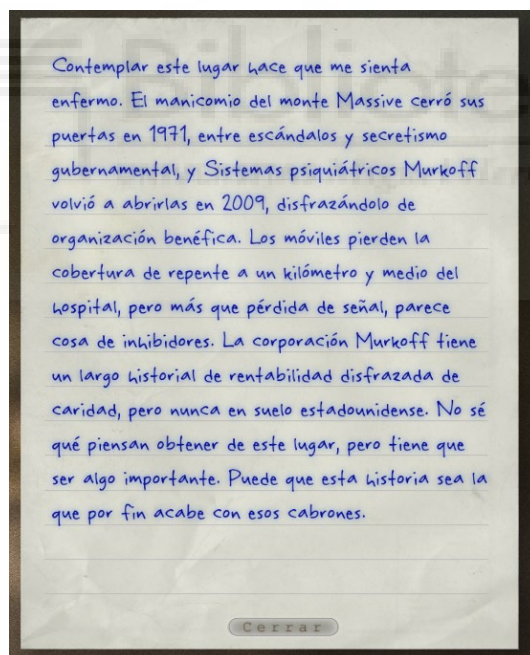 Contemplar este lugar hace que me sienta
enfermo. El manicomio del monte Massive cerró sus
puertas en 1971, entre escándalos y secretismo
gubernamental, y Sistemas psiquiátricos Murkoff
volvió a abrirlas en 2009, disfrazándolo de
organización benéfica. Los móviles pierden la
cobertura de repente a un kilómetro y medio del
hospital, pero más que pérdida de señal, parece
cosa de inhibidores. La corporación Murkoff tiene
un largo historial de rentabilidad disfrazada de
caridad, pero nunca en suelo estadounidense. No sé
qué piensan obtener de este lugar, pero tiene que
ser algo importante. Puede que esta historia sea la
que por fin acabe con esos cabrones.
Cerrar